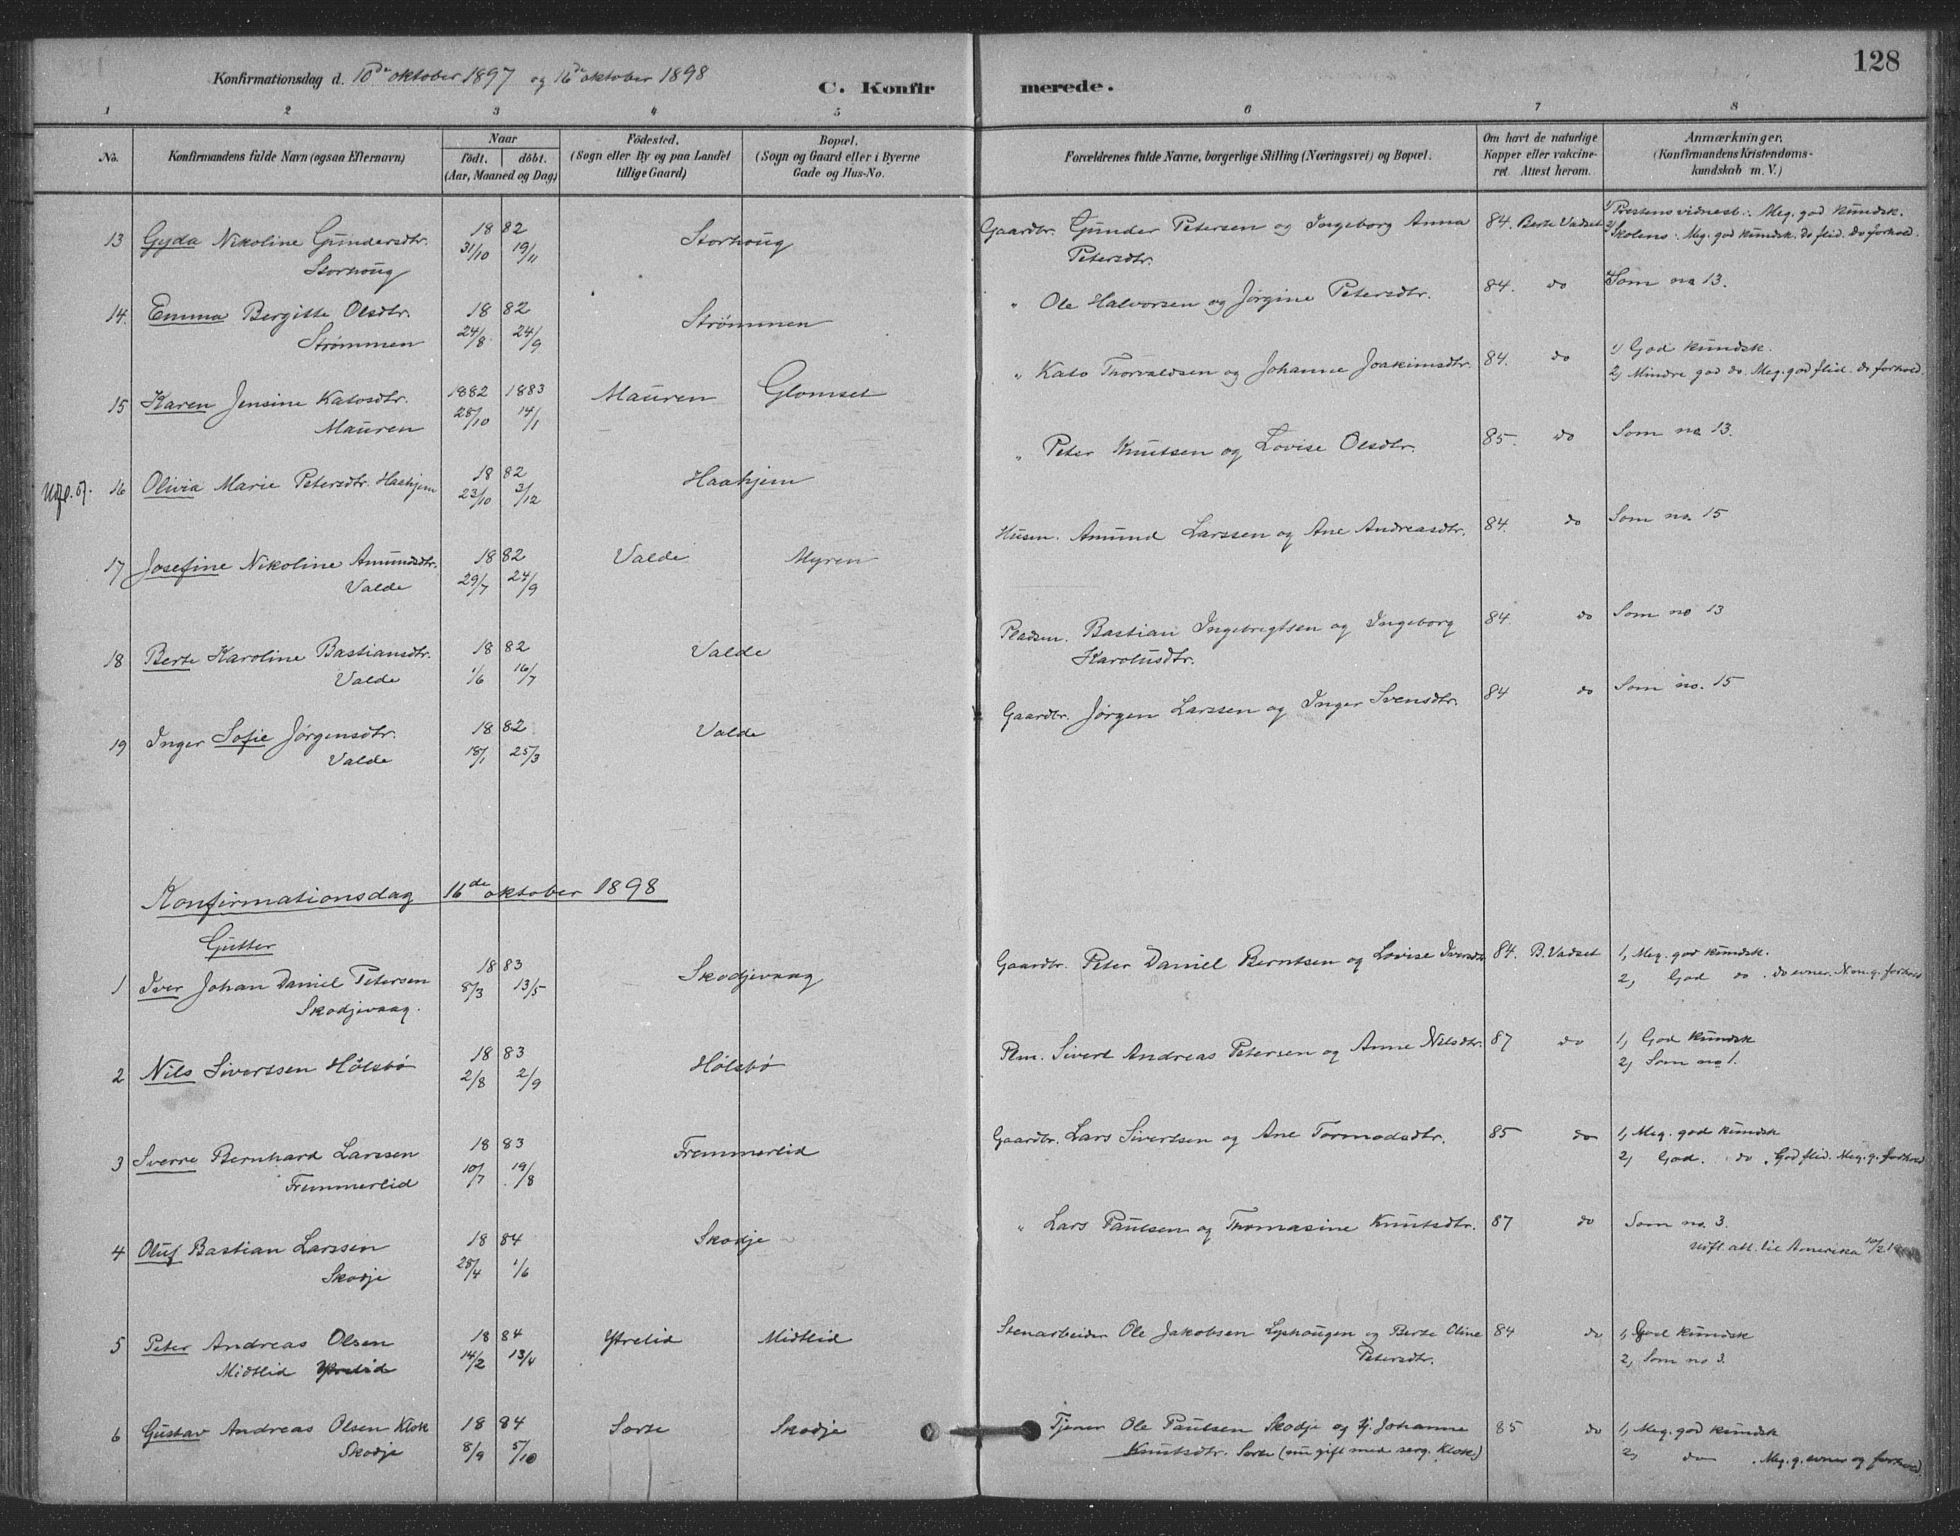 128
Konfirmationsdag d. 10de oktober 1897 og 16de oktober 1898
C. Konfirmerede.
1 2 3 4 5 6 7 8
No.
Konfirmandens fulde Navn (ogsaa Efternavn)
Naar
födt. döbt.
(Aar, Maaned og Dag)
Födested.
(Sogn eller By og paa Landet
tillige Gaard)
Bopæl.
(Sogn og Gaard eller i Byerne
Gade og Hus-No.
Forældrenes fulde Navne, borgerlige Stilling (Næringsvei) og Bopæl.
Om havt de naturlige
Kopper eller vakcine-
ret. Attest herom.
Anmærkninger.
(Konfirmandens Kristendoms-
kundskab m. V.)
13 Gyda Nikoline Gundersdtr. 18 82 Storhoug Gaardbr. Gunder Petersen og Ingeborg Anna 84. Berte Vadset 1) Prestens vidnesb: Meg. god kundsk.
Storhoug 31/10 19/11 Petersdtr. 2) Skolens: Meg. god kundsk. do flid. do forhold.
14. Emma Bergitte Olsdtr. 18 82 Strømmen " Ole Halvorsen og Jørgine Petersdtr. 84. do Som no 13.
Strømmen 24/8 24/9
15 Karen Jensine Katosdtr. 1882 1883 Mauren Glomset " Kato Thorvaldsen og Johanne Joakimsdtr. 84. do 1) God kundsk.
Mauren 28/10 14/1 2) Mindre god do. Meg. god flid. do forhold.
16 Olivia Marie Petersdtr. Haahjem 18 82 Haahjem " Peter Knutsen og Lovise Olsdtr. 85. do Som no 13.
23/10 3/12
17 Josefine Nikoline Amundsdtr. 18 82 Valde Myren Husm. Amund Larssen og Ane Andreasdtr. 84. do Som no. 15
Valde 29/7 24/9
18 Berte Karoline Bastiansdtr. 18 82 Valde Pladsm. Bastian Ingebrigtsen og Ingeborg 84. do Som no 13
Valde 1/6 16/7 Karolusdtr.
19 Inger Sofie Jørgensdtr. 18 82 Valde Gaardbr. Jørgen Larssen og Inger Svensdtr. 84 do Som no. 15
Valde 18/1 25/3
Konfirmationsdag 16de oktober 1898
Gutter
1 Iver Johan Daniel Petersen 18 83 Skodjevaag Gaardbr. Peter Daniel Berntsen og Lovise Iversdt 84. B. Vadset 1, Meg. god kundsk.
Skodjevaag. 8/3 13/5 2, God do . do evner. forhold
2 Nils Sivertsen Hølsbø 18 83 Hølsbø Plm. Sivert Andreas Petersen og Anne Nilsdtr. 87 do 1, God kundsk
2/8 2/9 2, Som no 1.
3 Sverre Bernhard Larssen 18 83 Fremmerlid Gaardbr. Lars Sivertsen og Ane Tormodsdtr. 85 do 1, Meg. god kundsk
Fremmerlid 10/7 19/8 2, God. do . God flid. Meg. g. forhold
4 Oluf Bastian Larssen 18 84 Skodje " Lars Paulsen og Thomasine Knutsdtr. 87 do Som no. 3.
Skodje 28/4 1/6 Udft. att. til Amerika
5 Peter Andreas Olsen 18 84 Ytrelid Midtlid Stenarbeider Ole Jakobsen Lyshougen og Berte Oline 84 do 1, God kundsk
Midtlid Ytrelid 14/2 13/4 Petersdtr. 2, Som no 3.
6 Gustav Andreas Olsen Klok 18 84 Sorte Skodje Tjener Ole Paulsen Skodje og tj. Johanne 85 do 1, Meg. god kundsk
Skodje 8/9 5/10 Knutsdtr. Sorte (nu gift med serg. Klok) 2, do . Meg. g. evner og forhold